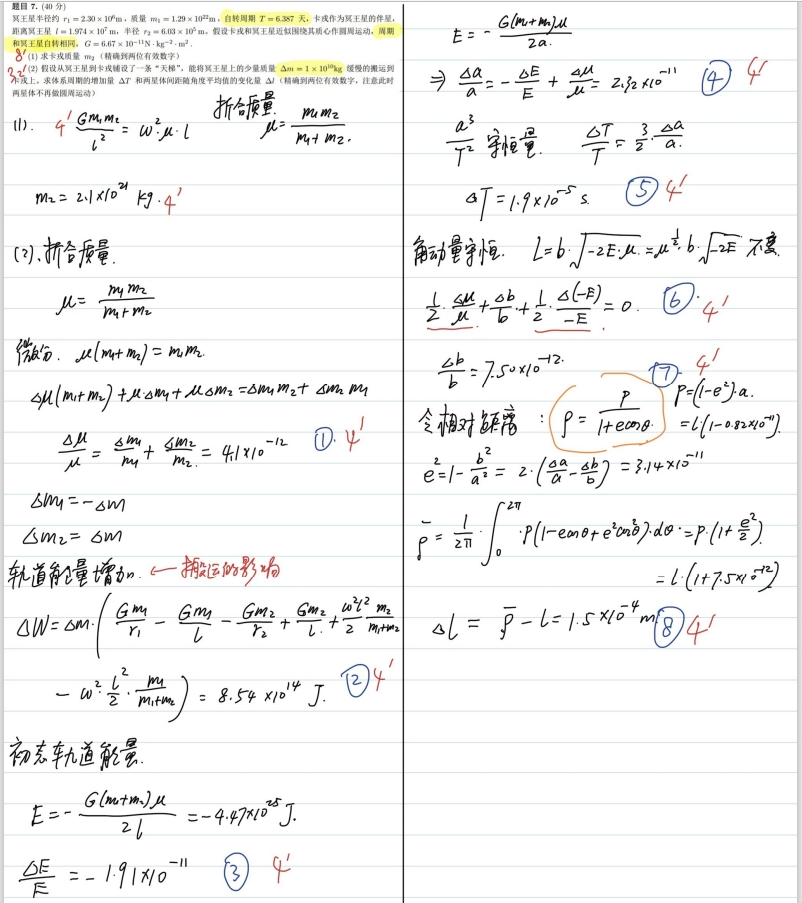 题目 7. (40 分)
冥王星半径约 r₁ = 2.30 × 10⁶m，质量 m₁ = 1.29 × 10²²m，自转周期 T = 6.387 天，卡戎作为冥王星的伴星，
距离冥王星 l = 1.974 × 10⁷ m，半径 r₂ = 6.03 × 10⁵ m。假设卡戎和冥王星近似围绕其质心作圆周运动，周期
和冥王星自转相同，G = 6.67 × 10⁻¹¹N · kg⁻² · m².
8' (1) 求卡戎质量 m₂（精确到两位有效数字）
32' (2) 假设从冥王星到卡戎铺设了一条“天梯”，能将冥王星上的少量质量 Δm = 1 × 10¹⁰kg 缓慢的搬运到
卡戎上，求体系周期的增加量 ΔT 和两星体间距随角度平均值的变化量 Δl（精确到两位有效数字，注意此时
两星体不再做圆周运动）
(1). 4' Gm₁m₂/l² = ω²·μ·l 折合质量 μ = m₁m₂/(m₁+m₂).
m₂ = 2.1×10²¹ kg. 4'
(2). 折合质量.
μ = m₁m₂/(m₁+m₂)
微分. μ(m₁+m₂) = m₁m₂.
Δμ(m₁+m₂) + μ·Δm₁ + μΔm₂ = Δm₁m₂ + Δm₂m₁
Δμ/μ = Δm₁/m₁ + Δm₂/m₂ = 4.1×10⁻¹² ①. 4'
Δm₁ = -Δm
Δm₂ = Δm
轨道能量增加. ← 搬运的影响
ΔW = Δm·(Gm₁/r₁ - Gm₁/l - Gm₂/r₂ + Gm₂/l + ω²l²/2 · m₂/(m₁+m₂)
- ω²·l²/2·m₁/(m₁+m₂)) = 8.54×10¹⁴ J. ② 4'
初态轨道能量.
E = -G(m₁+m₂)μ/2l = -4.47×10²⁵ J.
ΔE/E = -1.91×10⁻¹¹ ③ 4'
E = -G(m₁+m₂)μ/2a.
⇒ Δa/a = -ΔE/E + Δμ/μ = 2.32×10⁻¹¹ ④ 4'
a³/T² 守恒量. ΔT/T = 3/2·Δa/a.
ΔT = 1.9×10⁻⁵ s. ⑤ 4'
角动量守恒. L = b·√(-2E·μ) = μ^(1/2)·b·√(-2E) 不变.
1/2·Δμ/μ + Δb/b + 1/2·Δ(-E)/-E = 0. ⑥. 4'
Δb/b = 7.50×10⁻¹². ⑦. 4'
令相对距离: ρ = P/(1+ecosθ) P = (1-e²)·a.
= l(1-0.82×10⁻¹¹).
e² = 1 - b²/a² = 2·(Δa/a - Δb/b) = 3.14×10⁻¹¹
ρ̄ = 1/2π·∫₀^2π P(1-ecosθ+e²cos²θ)·dθ = P·(1+e²/2).
= l·(1+7.5×10⁻¹²)
Δl = ρ̄ - l = 1.5×10⁻⁴ m ⑧ 4'